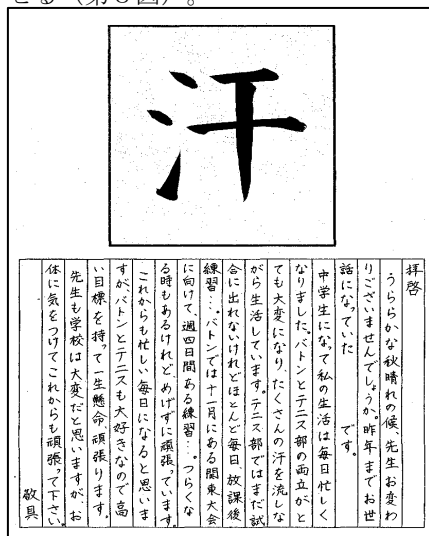 汗
拝啓
うららかな秋晴れの候、先生お変わ
りございませんでしょうか。昨年までお世
話になっていた　　です。
中学生になって私の生活は毎日忙しく
なりました。バトンとテニス部の両立がと
ても大変になり、たくさんの汗を流しな
がら生活しています。テニス部ではまだ試
合に出れないけれどほとんど毎日、放課後
練習…。バトンでは十一月にある関東大会
に向けて、週四日間ある練習…。つらくな
る時もあるけれど、めげずに頑張っています。
これからも忙しい毎日になると思いま
すが、バトンとテニスも大好きなので高
い目標を持って一生懸命、頑張ります。
先生も学校は大変だと思いますが、お
体に気をつけてこれからも頑張って下さい。
敬具